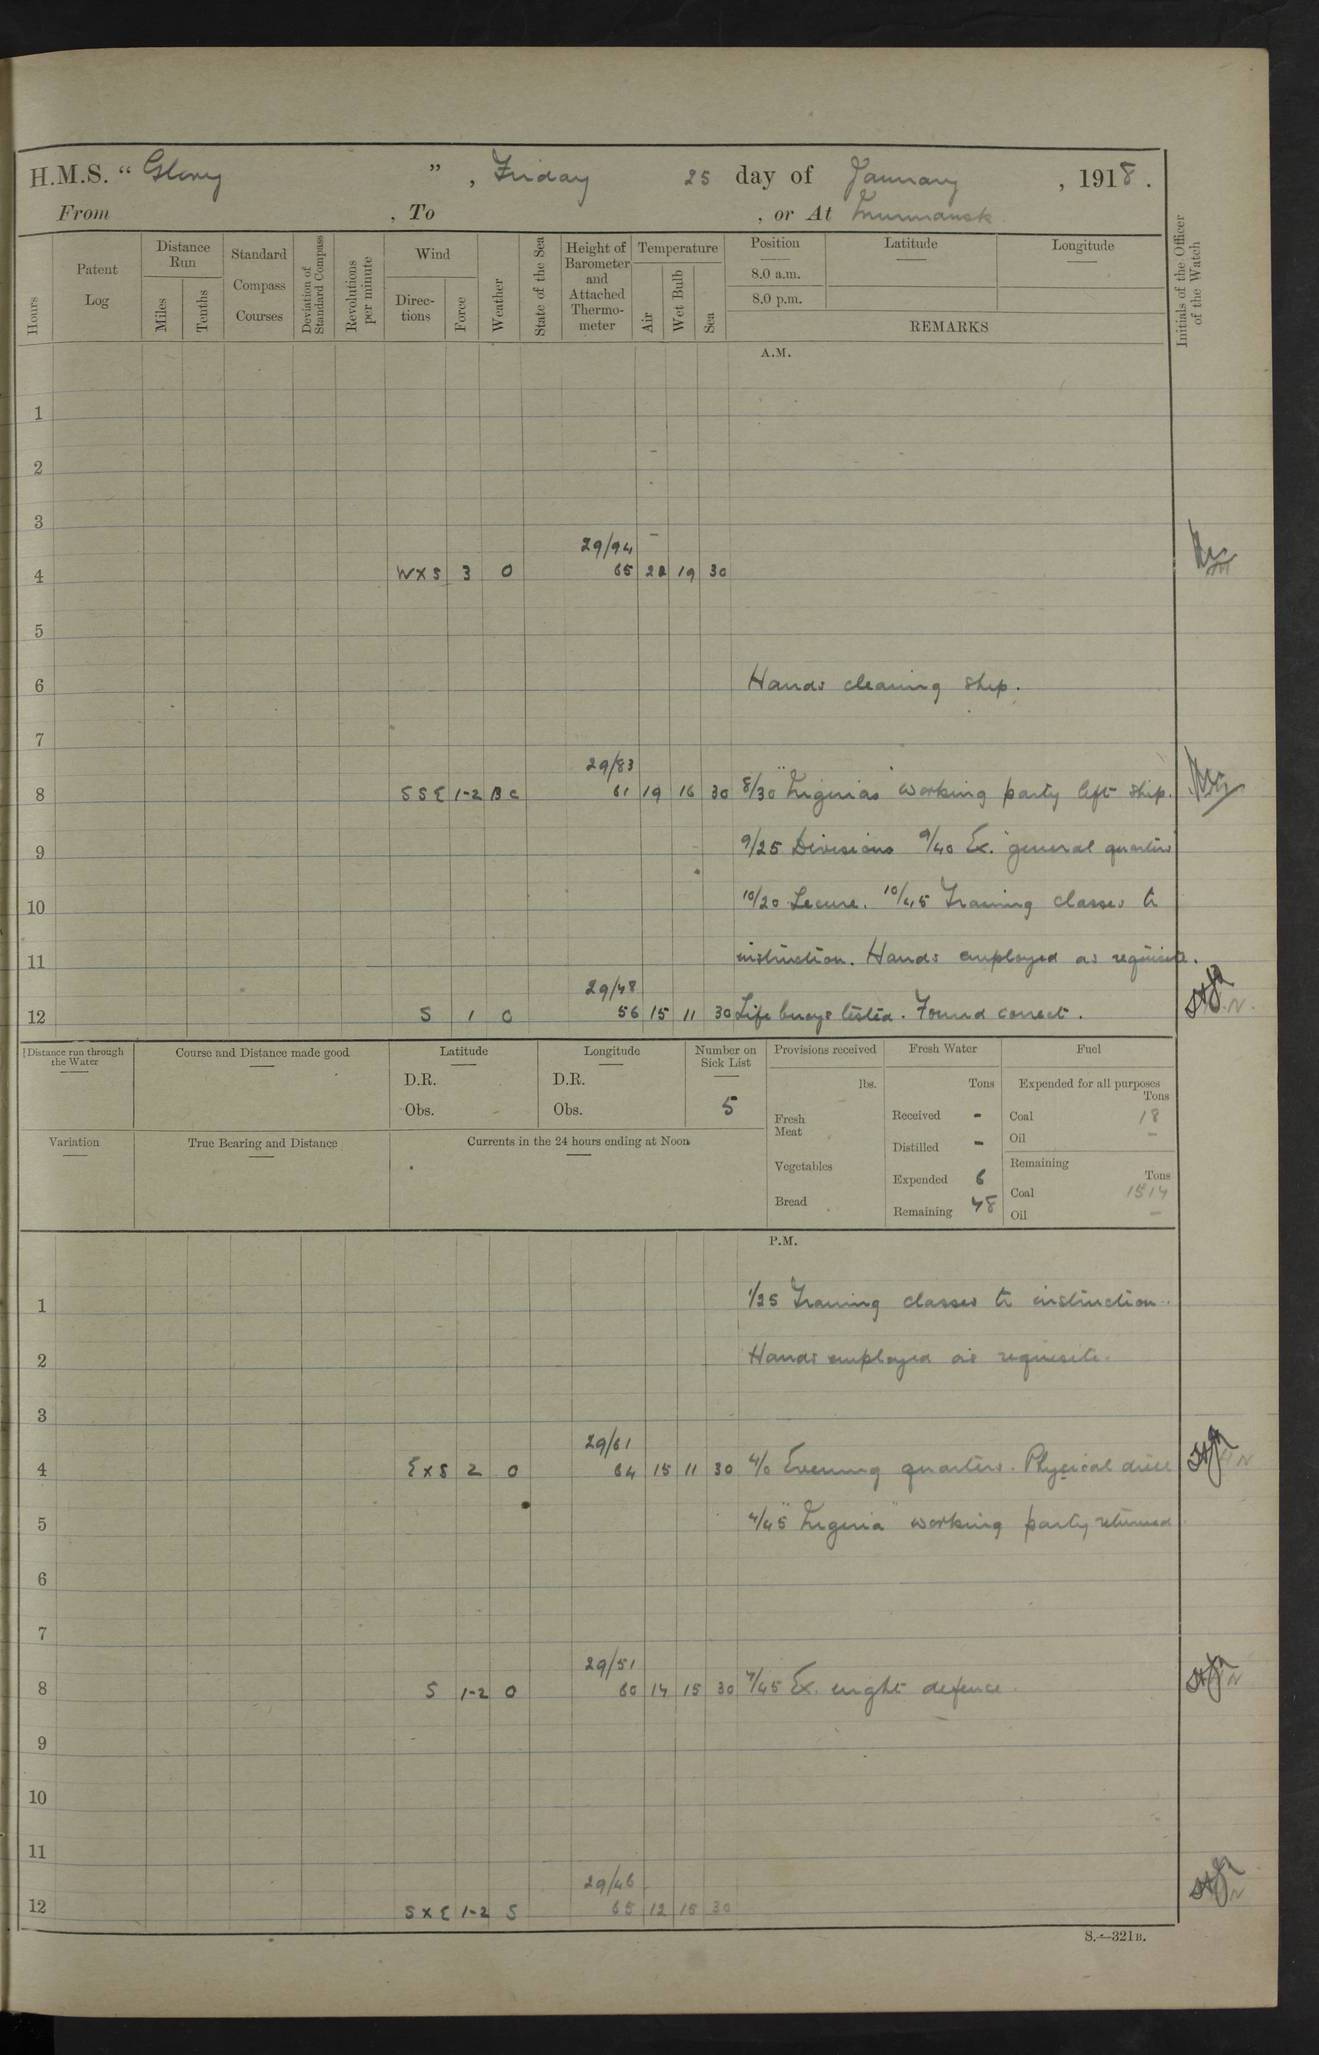 H.M.S. “ Glory ” , Friday 25 day of January , 1918 .
From , To , or At Murmansk
Hours
Patent Log
Distance Run
Miles
Tenths
Standard Compass Courses
Deviation of Standard Compass
Revolutions per minute
Wind
Direc-tions
Force
Weather
State of the Sea
Height of Barometer and Attached Thermo-meter
Temperature
Air
Wet Bulb
Sea
Position
8.0 a.m.
8.0 p.m.
Latitude
Longitude
REMARKS
Initials of the Officer of the Watch
A.M.
1
2
3
29/94
4 W X S 3 O 65 22 19 30
5
6 Hands cleaning ship.
7
29/83
8 S S E 1-2 B C 61 19 16 30 8/30 working party left ship.
9 9/25 Divisions 9/40 Ex. general quarters
10 10/20 Secure. 10/45 Training classes to
11 instruction. Hands employed as requisite.
29/48
12 S 1 O 56 15 11 30 Life buoys tested. Found correct.
Distance run through the Water
Course and Distance made good
Latitude
D.R.
Obs.
Longitude
D.R.
Obs.
Number on Sick List
5
Provisions received
lbs.
Fresh Meat
Vegetables
Bread
Fresh Water
Tons
Received -
Distilled -
Expended 6
Remaining 48
Fuel
Expended for all purposes
Tons
Coal 18
Oil -
Remaining
Tons
Coal 1514
Oil -
Variation
True Bearing and Distance
Currents in the 24 hours ending at Noon
P.M.
1 1/25 Training classes to instruction.
2 Hands employed as requisite.
3
29/61
4 E X S 2 O 64 15 11 30 4/0 Evening quarters. Physical drill
5 4/45 working party returned
6
7
29/51
8 S 1-2 O 60 14 15 30 7/45 Ex. night defence
9
10
11
29/46
12 S X E 1-2 S 65 12 15 30
S.—321B.